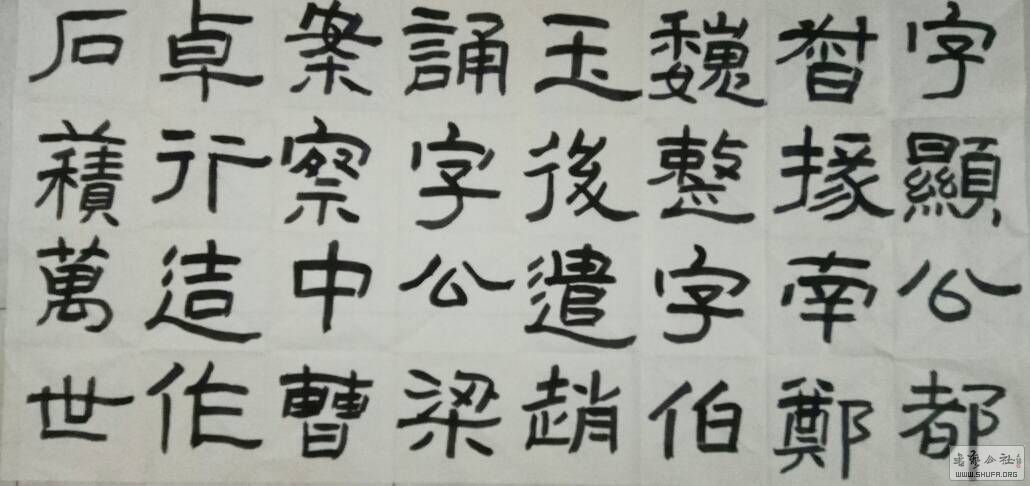 字顯公都
督掾南鄭
魏整字伯
玉後遣趙
誦字公梁
案察中曹
卓行造作
石積萬世
书艺公社
WWW.SHUFA.ORG